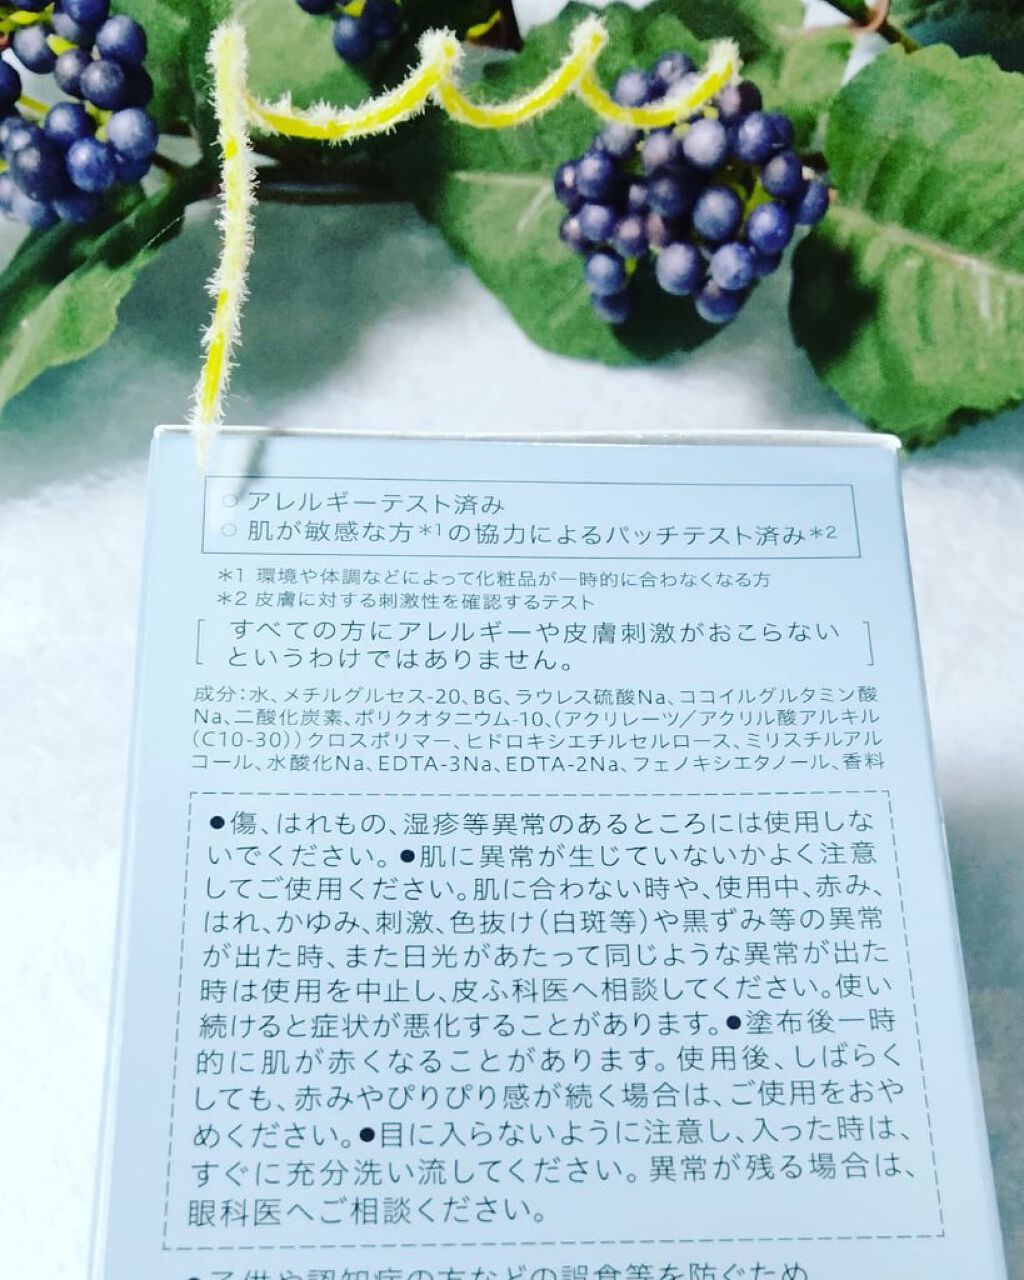 ○ アレルギーテスト済み
○ 肌が敏感な方*1の協力によるパッチテスト済み*2
*1 環境や体調などによって化粧品が一時的に合わなくなる方
*2 皮膚に対する刺激性を確認するテスト
すべての方にアレルギーや皮膚刺激がおこらない
というわけではありません。
成分:水、メチルグルセス-20、BG、ラウレス硫酸Na、ココイルグルタミン酸
Na、二酸化炭素、ポリクオタニウム-10、(アクリレーツ/アクリル酸アルキル
(C10-30))クロスポリマー、ヒドロキシエチルセルロース、ミリスチルアル
コール、水酸化Na、EDTA-3Na、EDTA-2Na、フェノキシエタノール、香料
●傷、はれもの、湿疹等異常のあるところには使用しな
いでください。●肌に異常が生じていないかよく注意
してご使用ください。肌に合わない時や、使用中、赤み、
はれ、かゆみ、刺激、色抜け(白斑等)や黒ずみ等の異常
が出た時、また日光があたって同じような異常が出た
時は使用を中止し、皮ふ科医へ相談してください。使い
続けると症状が悪化することがあります。●塗布後一時
的に肌が赤くなることがあります。使用後、しばらく
しても、赤みやぴりぴり感が続く場合は、ご使用をおや
めください。●目に入らないように注意し、入った時は、
すぐに充分洗い流してください。異常が残る場合は、
眼科医へご相談ください。
●子供や認知症の方などの誤食等を防ぐため